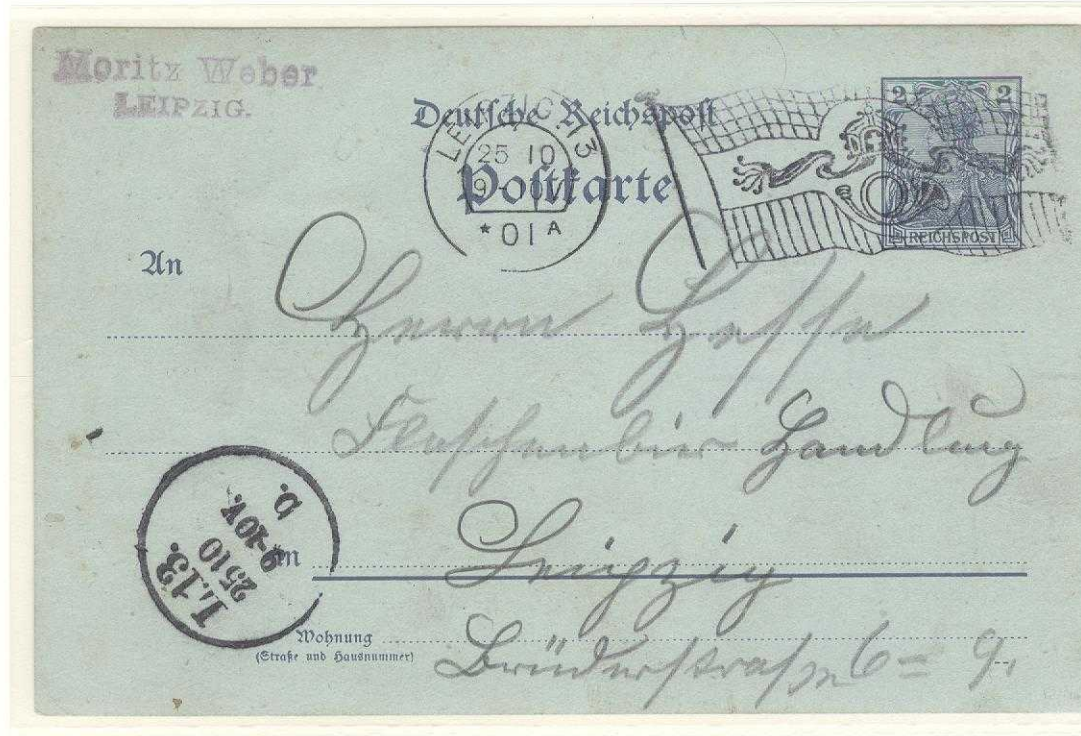 Moritz Weber
LEIPZIG.
Deutsche Reichspost
Postkarte
LEIPZIG. 13
25 10
9-10V
* 01 A
2 2
REICHSPOST
An
Herrn Hesse
Flaschenbier Handlung
in Leipzig
L.13.
25 10
9-10V.
D.
Wohnung
(Straße und Hausnummer)
Brüderstraße 6 = 9.